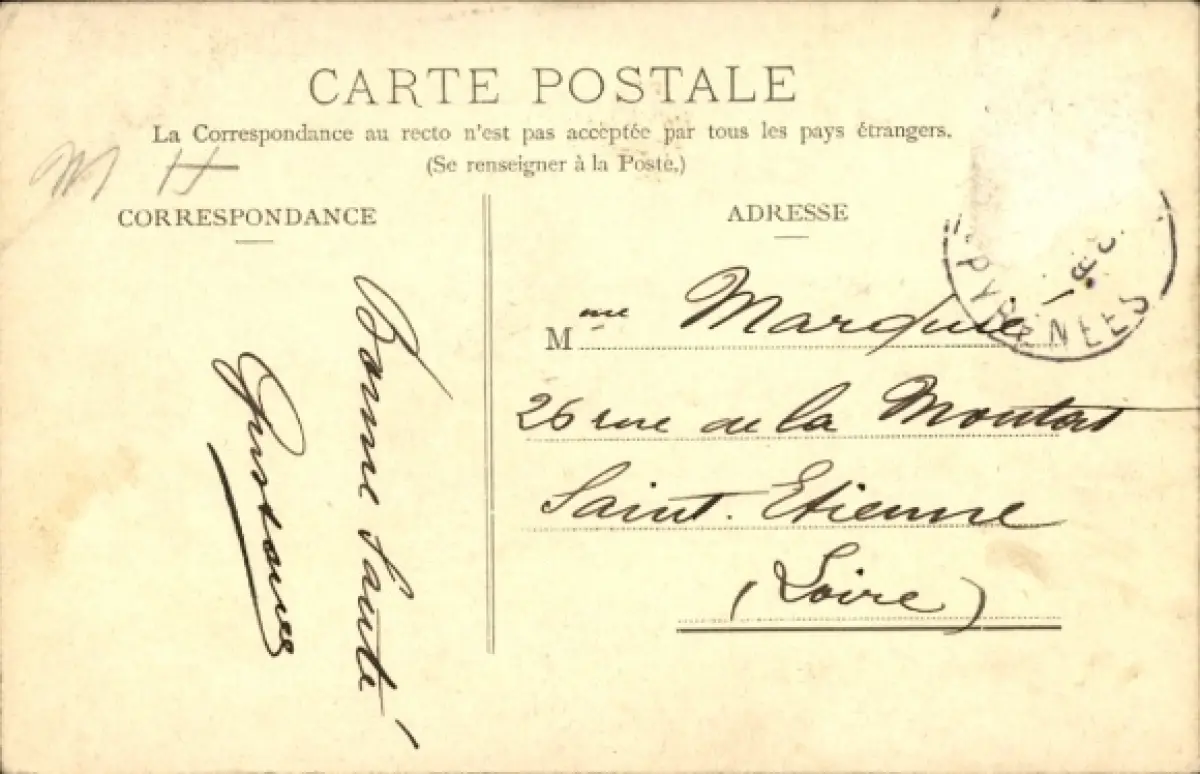 CARTE POSTALE
La Correspondance au recto n'est pas acceptée par tous les pays étrangers.
(Se renseigner à la Poste.)
M H
CORRESPONDANCE
Bonne Santé
ADRESSE
Mme Marquie
26 rue de la Montat
Saint. Etienne
(Loire)
PYRENEES